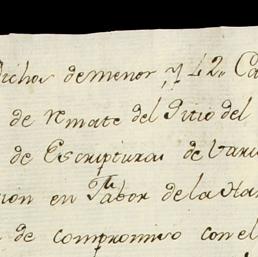 dichos de menor, y 42. Ca
de remate del Sitio del
de Escripturas de Vari
cion en fabor de la Ha
de compromiso con el